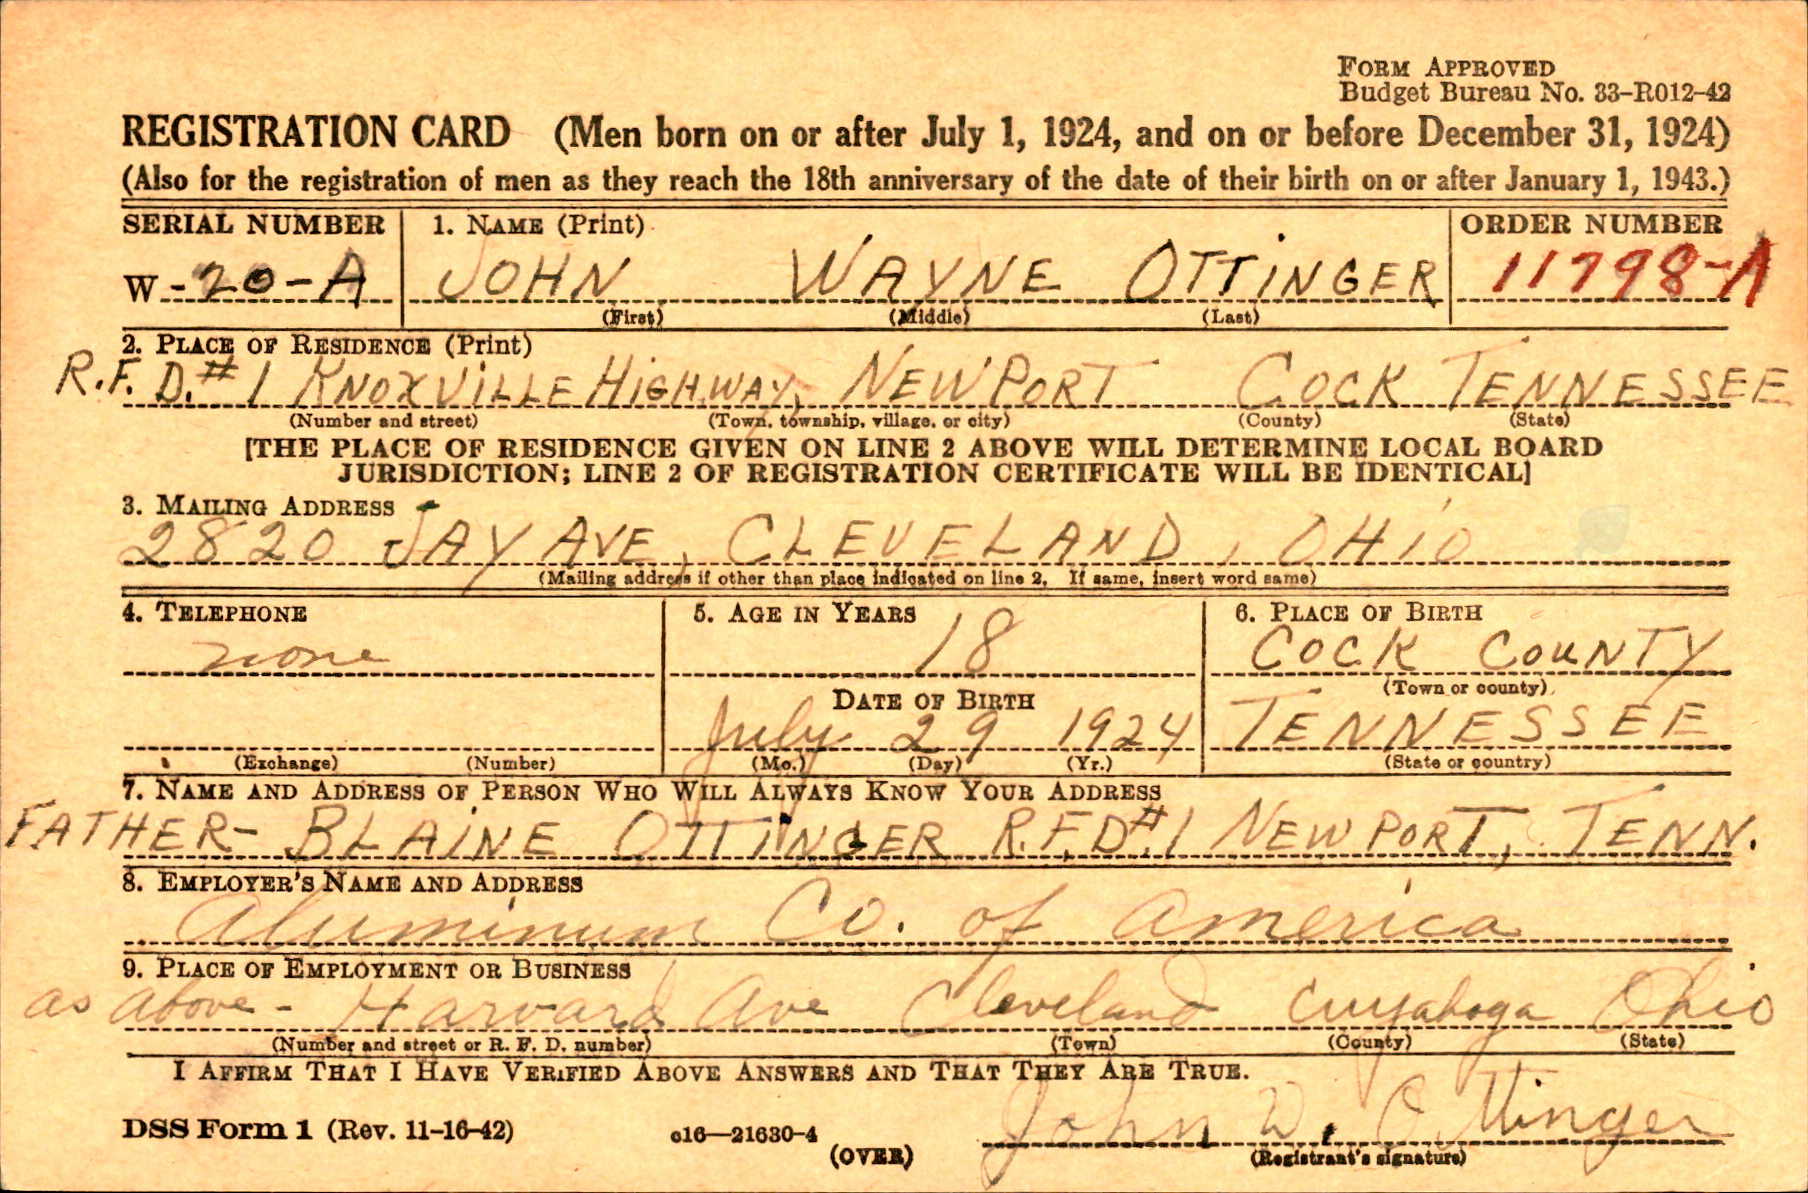 FORM APPROVED
Budget Bureau No. 33-R012-42
REGISTRATION CARD (Men born on or after July 1, 1924, and on or before December 31, 1924)
(Also for the registration of men as they reach the 18th anniversary of the date of their birth on or after January 1, 1943.)
SERIAL NUMBER 1. NAME (Print) ORDER NUMBER
W-20-A JOHN WAYNE OTTINGER 11798-A
(First) (Middle) (Last)
2. PLACE OF RESIDENCE (Print)
R.F.D.#1 KNOXVILLE HIGHWAY, NEWPORT COCK TENNESSEE
(Number and street) (Town, township, village, or city) (County) (State)
[THE PLACE OF RESIDENCE GIVEN ON LINE 2 ABOVE WILL DETERMINE LOCAL BOARD
JURISDICTION; LINE 2 OF REGISTRATION CERTIFICATE WILL BE IDENTICAL]
3. MAILING ADDRESS
2820 JAY AVE, CLEVELAND, OHIO
(Mailing address if other than place indicated on line 2. If same, insert word same)
4. TELEPHONE 5. AGE IN YEARS 6. PLACE OF BIRTH
none 18 COCK COUNTY
(Town or county)
DATE OF BIRTH
July 29 1924 TENNESSEE
(Exchange) (Number) (Mo.) (Day) (Yr.) (State or country)
7. NAME AND ADDRESS OF PERSON WHO WILL ALWAYS KNOW YOUR ADDRESS
FATHER- BLAINE OTTINGER R.F.D.#1 NEWPORT, TENN.
8. EMPLOYER'S NAME AND ADDRESS
Aluminum Co. of America
9. PLACE OF EMPLOYMENT OR BUSINESS
as above - Harvard Ave Cleveland Cuyahoga Ohio
(Number and street or R. F. D. number) (Town) (County) (State)
I AFFIRM THAT I HAVE VERIFIED ABOVE ANSWERS AND THAT THEY ARE TRUE.
John W. Ottinger
DSS Form 1 (Rev. 11-16-42) c16—21630-4
(OVER) (Registrant's signature)